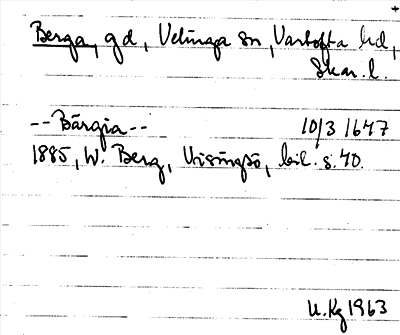 Berga, gd, Velinga sn, Vartofta hd,
Skar. l.
-- Bärgia --          10/3 1647
1885, W. Berg, Visingsö, bil. s. 40.
U. Kg 1963